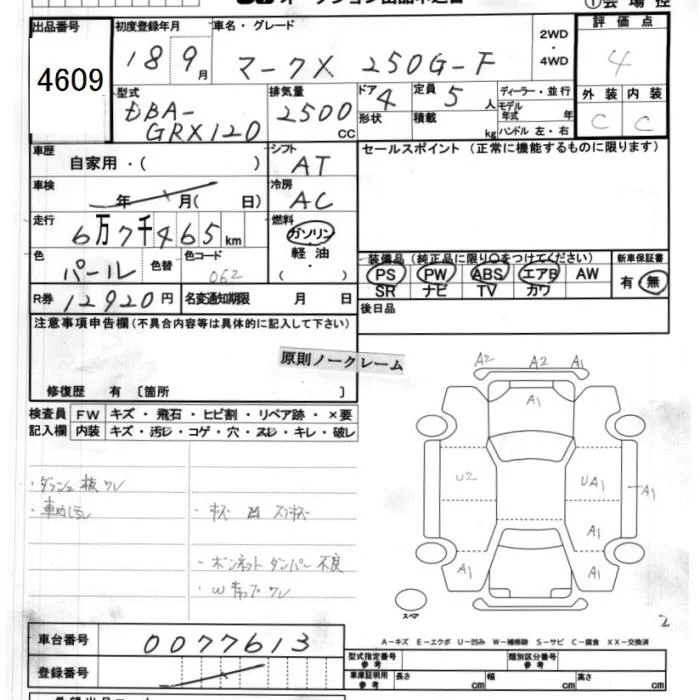 ①会場控
出品番号 初度登録年月 車名・グレード 評価点
4609 18 9月 マークX 250G-F 2WD・4WD 4
型式 DBA-GRX120 排気量 2500cc ドア 4 定員 5人 ディーラー・並行 外装 内装
形状 積載 kg モデル年式 年 ハンドル 左・右 C C
車歴 自家用・( ) シフト AT セールスポイント (正常に機能するものに限ります)
車検 年 月( 日) 冷房 AC
走行 6万7千465km 燃料 ガソリン 軽油・( ・ )
色 パール 色替 色コード 062 装備品(純正品に限り○をつけてください) 新車保証書
PS PW ABS エアB AW 有・無
SR ナビ TV カワ
R券 12920円 名変通知期限 月 日 後日品
注意事項申告欄(不具合内容等は具体的に記入して下さい)
原則ノークレーム
修復歴 有 〔箇所 〕
検査員 FW キズ・飛石・ヒビ割・リペア跡・×要
記入欄 内装 キズ・汚レ・コゲ・穴・スレ・キレ・破レ
・ダッシュ板ワレ
・キズ 凹
・ボンネットダンパー不良
A2 A2 A1
A1
U2 UA1 A1
A1
A1 A1
スペア
2
A-キズ E-エクボ U-凹み W-補修跡 S-サビ C-腐食 XX-交換済
車台番号 0077613
登録番号
型式指定番号 参考 類別区分番号 参考
車庫証明用 参考 長さ cm 幅 cm 高さ cm